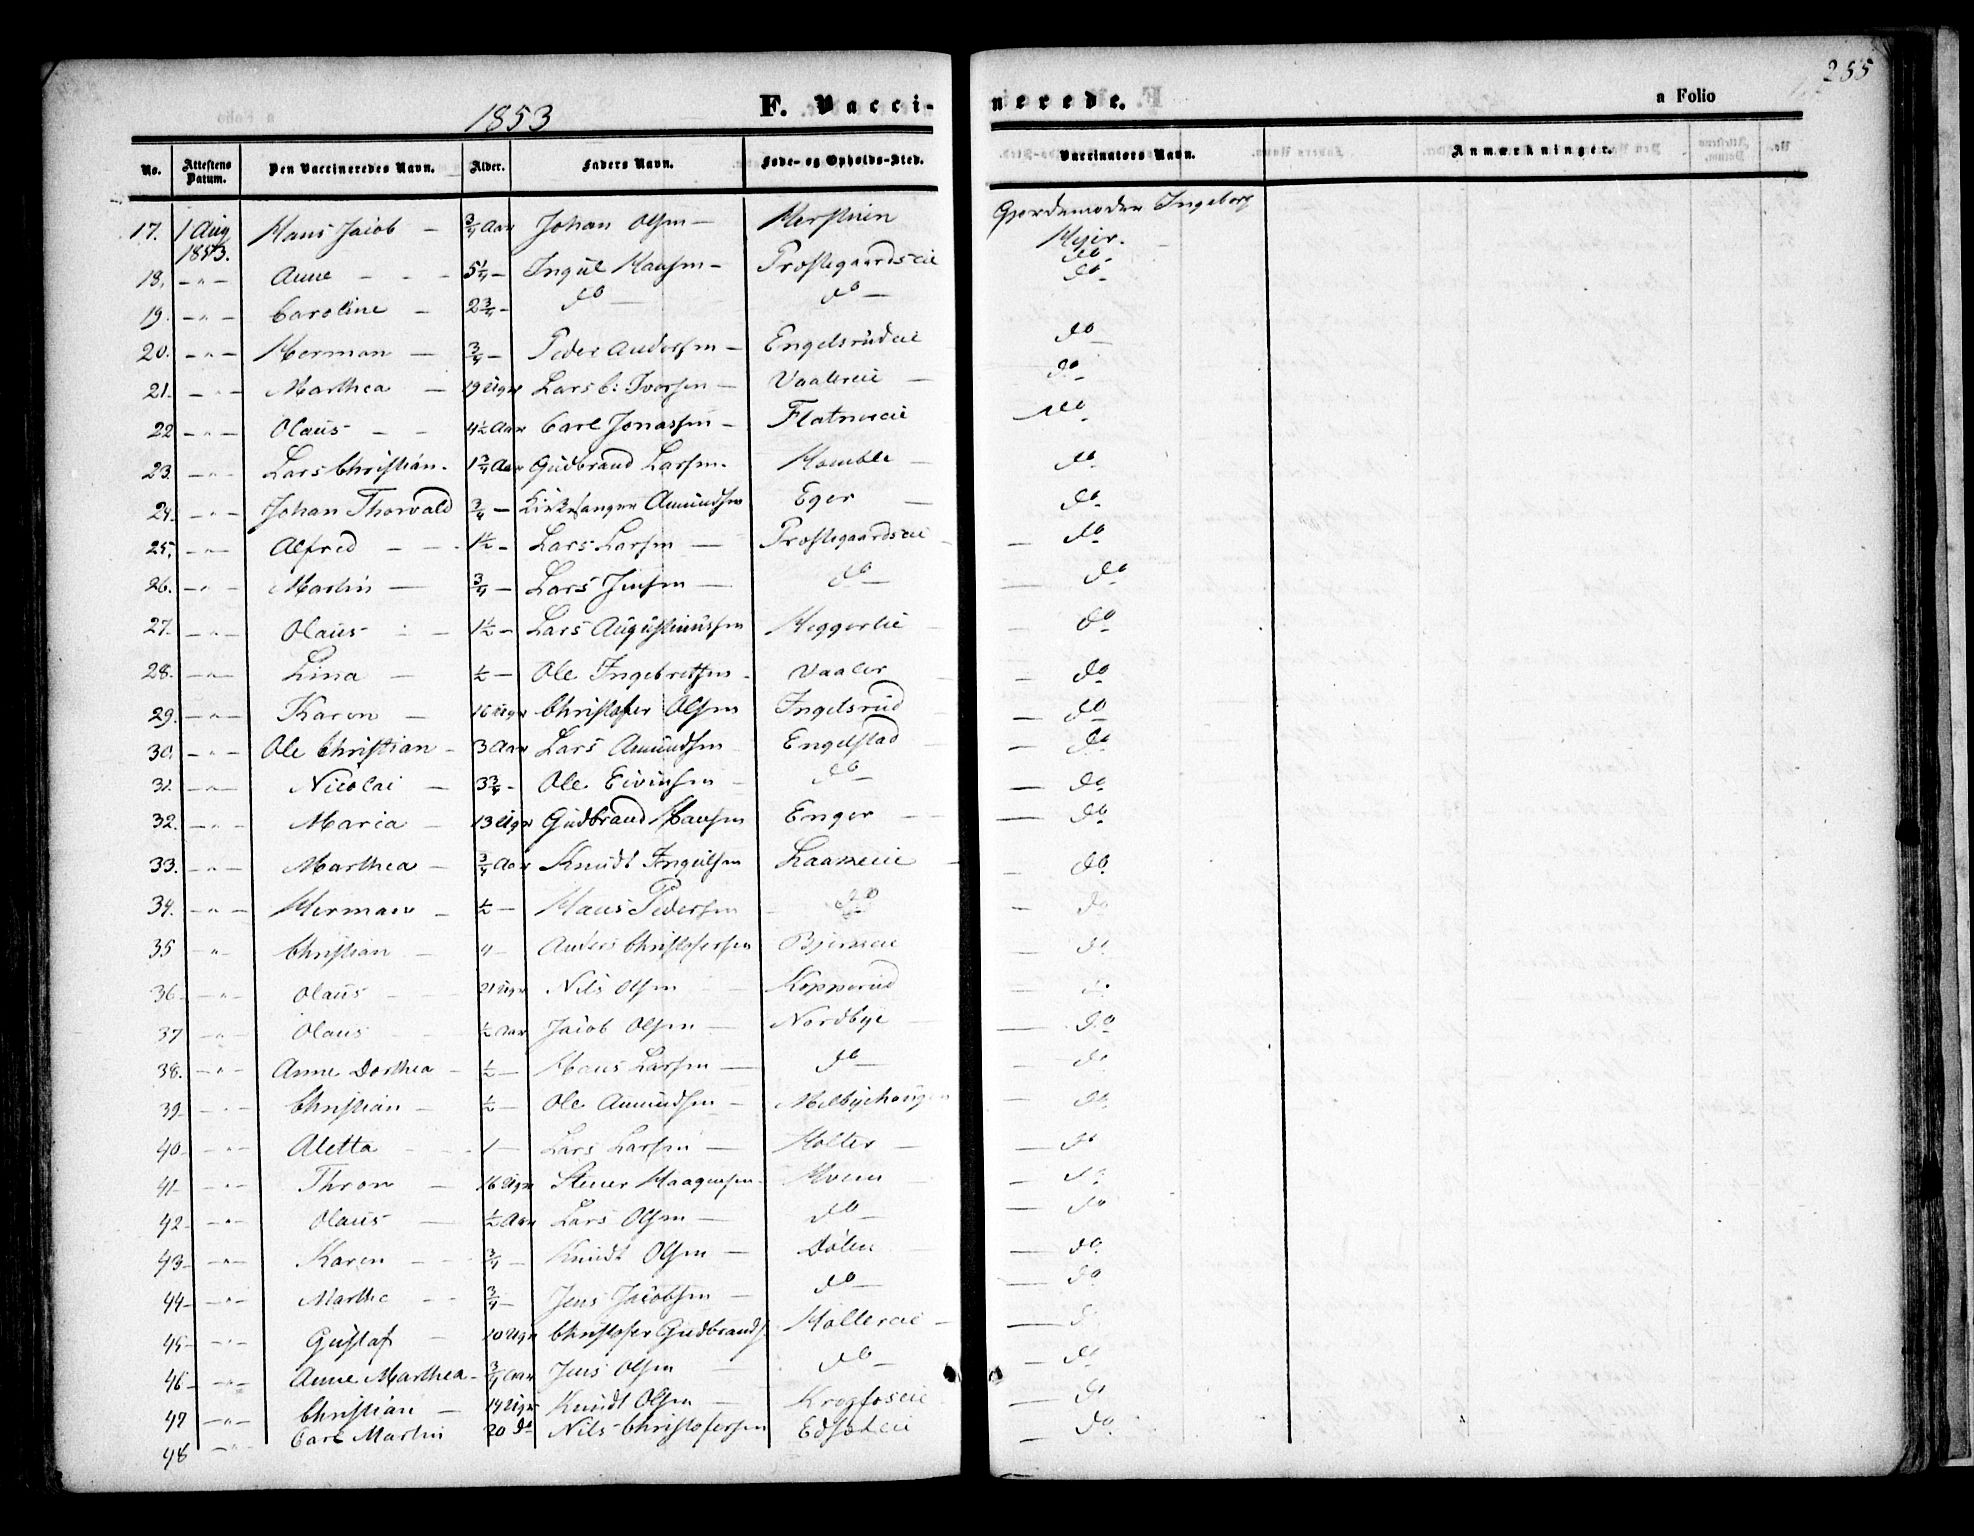 255
1853 F. Vacci- nerede. a Folio
No. Attestens Datum. Den Vaccineredes Navn. Alder. Faders Navn. Føde- og Opholds-Sted. Vaccinators Navn. Anmærkninger.
17. 1 Aug 1853. Hans Jacob - 3/4 Aar Johan Olsen - Gjordemoder Ingeborg
18. - " - Anne - - - 5 1/4 - Ingul Hansen - Prostegaardseie do
19. - " - Caroline - 2 3/4 - do - do - do
20. - " - Herman - 3/4 - Peder Andersen - Engelsrudeie do
21. - " - Marthea - 19 Uger Lars C: Iversen - Vaalereie - do
22 - " - Olaus - - 4 1/2 Aar Carl Jonassen - Flatnereie do
23. - " - Lars Christian. 1 3/4 Aar Gudbrand Larsen. Homble - do
24. - " - Johan Thorvald 3/4 - Kirkesanger Amundsen Eger - do
25. - " - Alfred - - 1 1/2 - Lars Larsen - Prostegaardseie - do
26. - " - Martin - 3/4 - Lars Jensen - do - - do
27. - " - Olaus - - 1 1/2 - Lars Augustinussen Heggerlie - - do
28. - " - Lina - 1/2 - Ole Ingebretsen - Vaaler - - do
29. - " - Karen - 16 Uger Christofer Olsen Ingelsrud - - do
30. - " - Ole Christian - 3 Aar Lars Amundsen Engelstad - do
31. - " - Nicolai - 3 3/4 - Ole Eivensen - do - - do
32. - " - Maria - 13 Uger Gudbrand Hansen Enger - - - do
33. - " - Marthea - 3/4 Aar Knudt Ingulsen Laaneeie - - do
34. - " - Herman - 1/2 - Hans Pedersen - do - do
35 - " - Christian - 4 - Anders Christofersen do
36. - " - Olaus - - 21 Uger Nils Olsen - - Kopperud - do
37 - " - Olaus - 1/2 Aar Jacob Olsen - Nordbye - - do
38. - " - Anne Dorthea - 1/2 - Hans Larsen - do - - do
39 - " - Christian - 1/2 - Ole Amundsen - Melbyehougen - do
40. - " - Aletta - - 1 - Lars Larsen - Holter - - do
41 - " - Thron - 16 Uger Stener Haagensen - Hvam - - do
42 - " - Olaus - 1/2 Aar Lars Olsen - do - - do
43 - " - Karen - - 3/4 - Knudt Olsen - Dølen - - do
44 - " - Marthe - - 3/4 - Jens Jacobsen - do - - do
45 - " - Gustaf - 10 Uger Christofer Gudbrands. Holtereie - - do
46 - " - Anne Marthea - 3/4 Aar Jens Olsen - do - - do
47 - " - Christian - 14 Uger Knudt Olsen - Krogfoseie - do
48 - " - Carl Martin 20 do Nils Christofersen - do